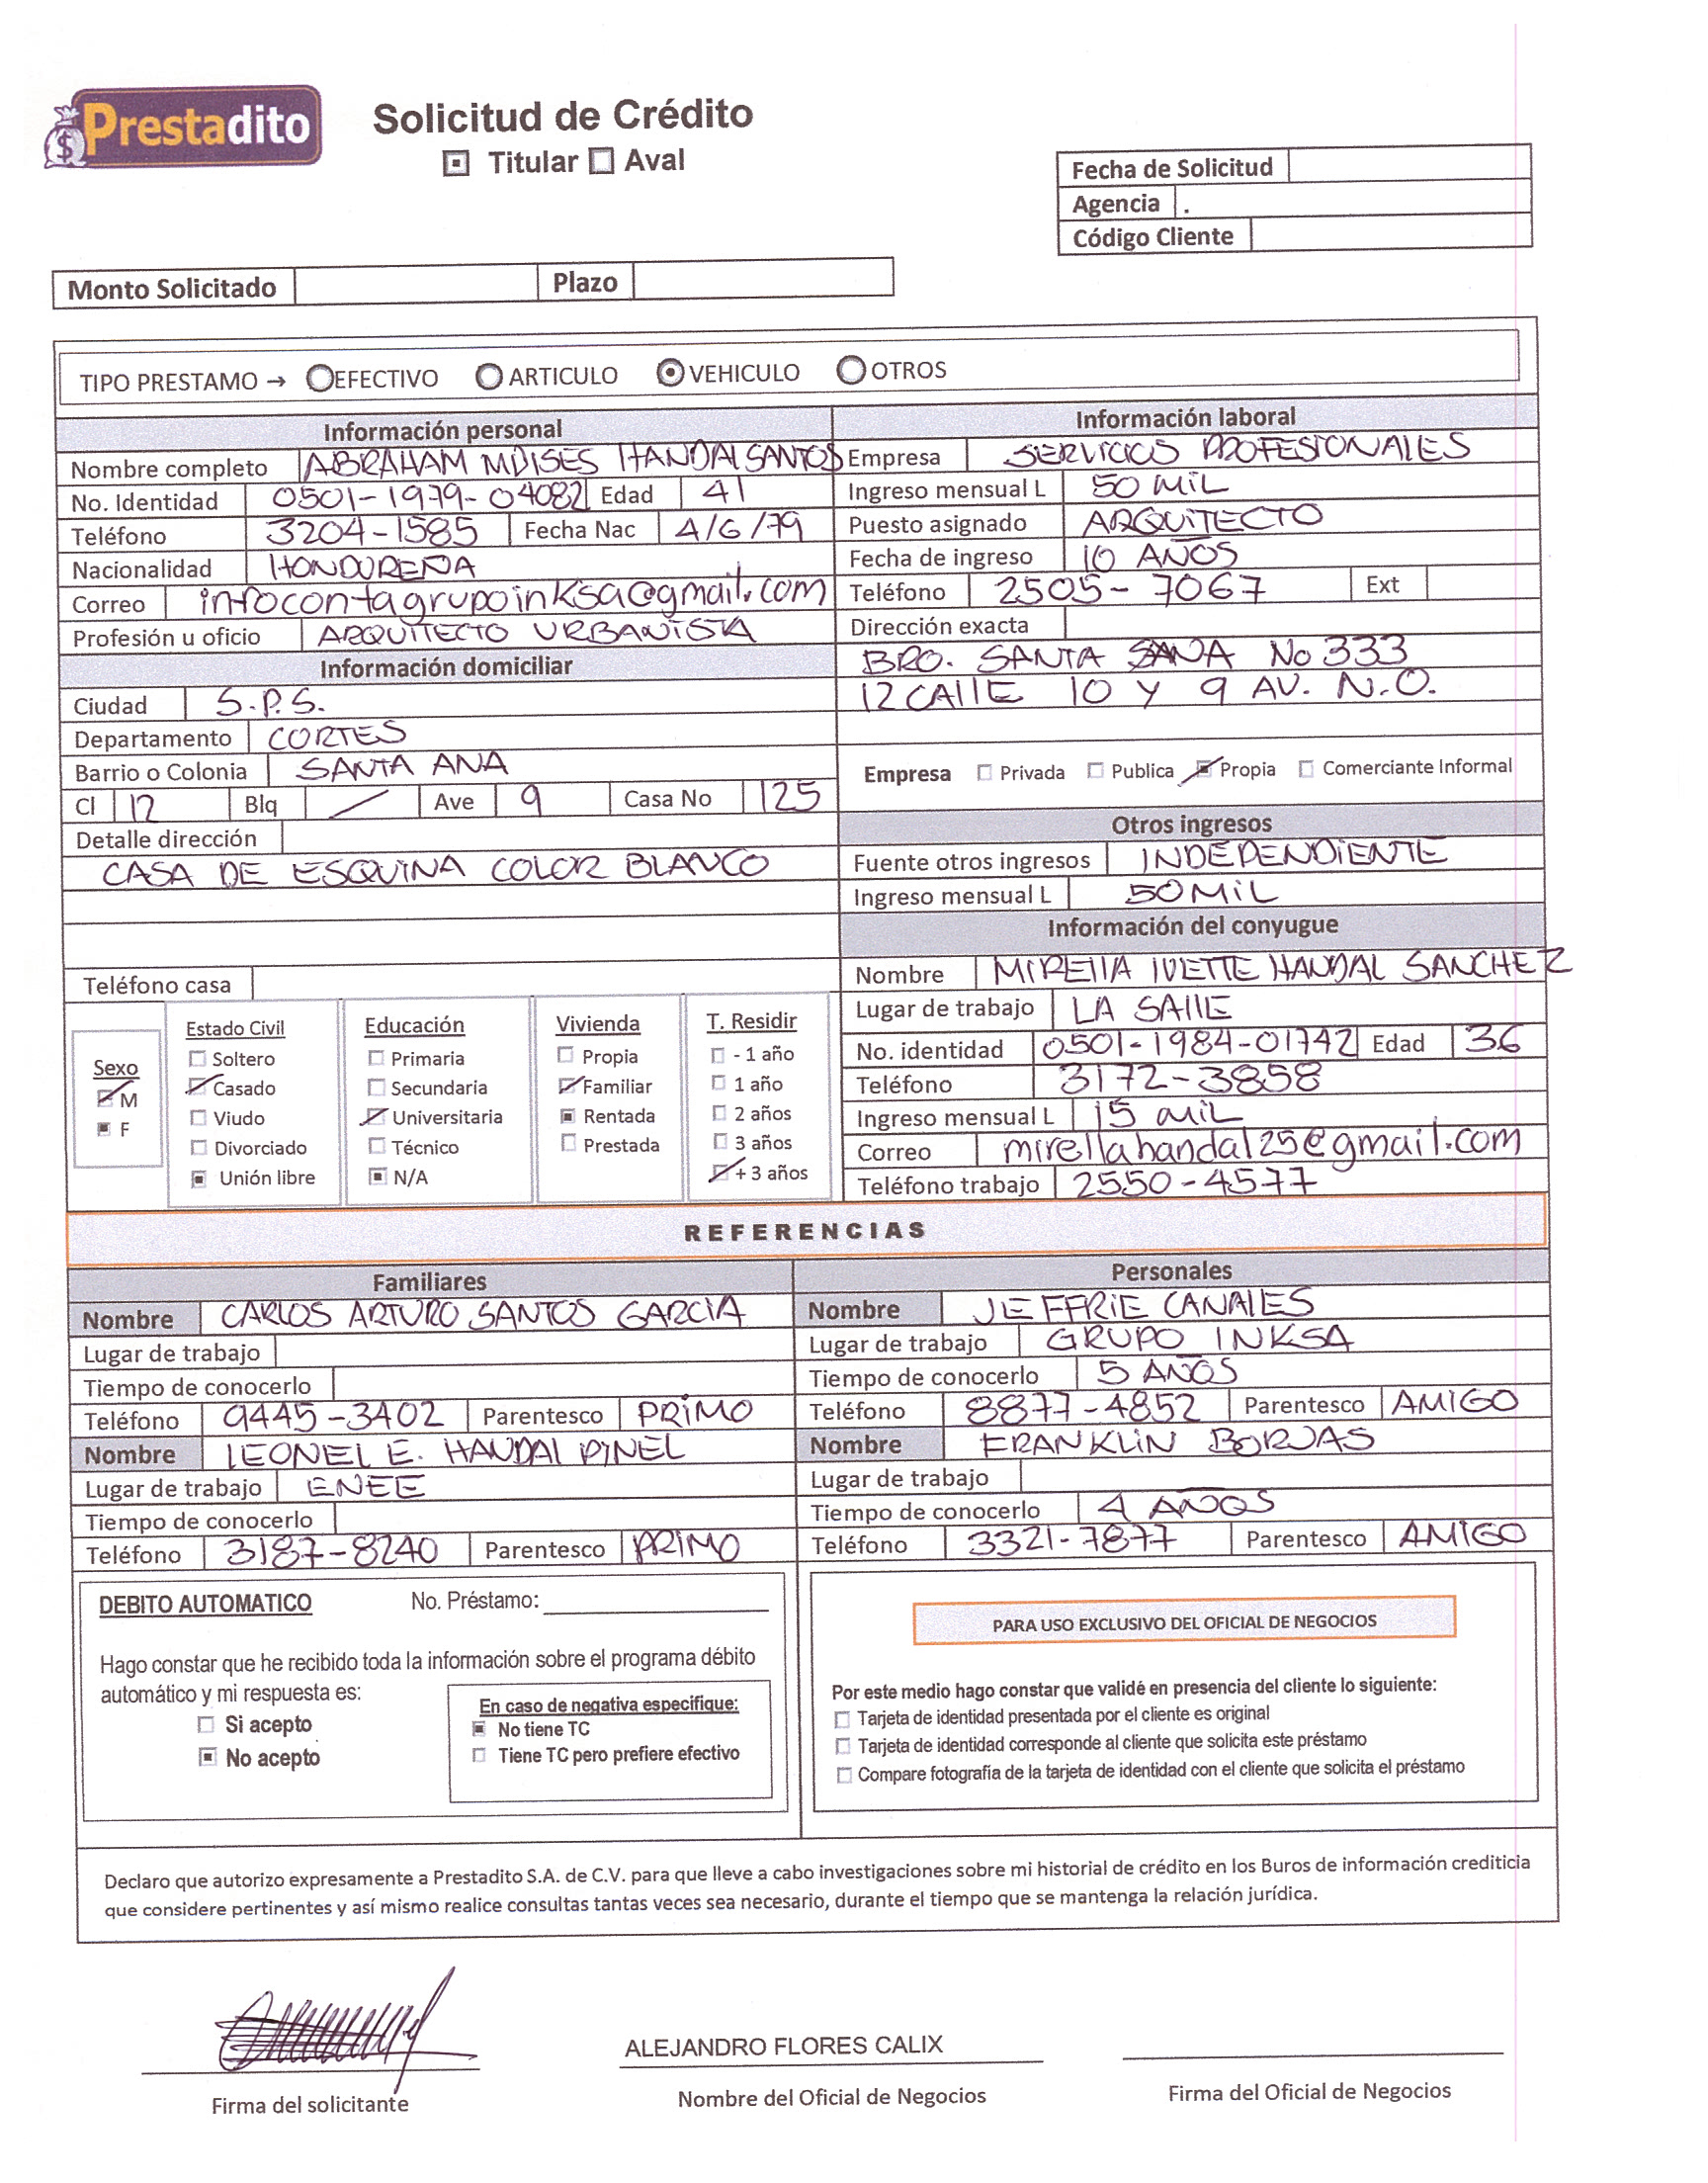 Prestadito
Solicitud de Crédito
Titular Aval
Fecha de Solicitud
Agencia .
Código Cliente
Monto Solicitado Plazo
TIPO PRESTAMO → EFECTIVO ARTICULO VEHICULO OTROS
Información personal
Nombre completo ABRAHAM MOISES HANDAL SANTOS
No. Identidad 0501-1979-04082 Edad 41
Teléfono 3204-1585 Fecha Nac 4/6/79
Nacionalidad HONDUREÑA
Correo infocontagrupoinksa@gmail.com
Profesión u oficio ARQUITECTO URBANISTA
Información domiciliar
Ciudad S.P.S.
Departamento CORTES
Barrio o Colonia SANTA ANA
Cl 12 Blq / Ave 9 Casa No 125
Detalle dirección
CASA DE ESQUINA COLOR BLANCO
Teléfono casa
Sexo
M
F
Estado Civil
Soltero
Casado
Viudo
Divorciado
Unión libre
Educación
Primaria
Secundaria
Universitaria
Técnico
N/A
Vivienda
Propia
Familiar
Rentada
Prestada
T. Residir
- 1 año
1 año
2 años
3 años
+ 3 años
Información laboral
Empresa SERVICIOS PROFESIONALES
Ingreso mensual L 50 MIL
Puesto asignado ARQUITECTO
Fecha de ingreso 10 AÑOS
Teléfono 2505-7067 Ext
Dirección exacta
BRO. SANTA ANA No 333
12 CALLE 10 Y 9 AV. N.O.
Empresa Privada Publica Propia Comerciante Informal
Otros ingresos
Fuente otros ingresos INDEPENDIENTE
Ingreso mensual L 50 MIL
Información del conyugue
Nombre MIRELLA IVETTE HANDAL SANCHEZ
Lugar de trabajo LA SALLE
No. identidad 0501-1984-01742 Edad 36
Teléfono 3172-3858
Ingreso mensual L 15 MIL
Correo mirellahandal25@gmail.com
Teléfono trabajo 2550-4577
REFERENCIAS
Familiares
Nombre CARLOS ARTURO SANTOS GARCIA
Lugar de trabajo
Tiempo de conocerlo
Teléfono 9445-3402 Parentesco PRIMO
Nombre LEONEL E. HANDAL PINEL
Lugar de trabajo ENEE
Tiempo de conocerlo
Teléfono 3187-8240 Parentesco PRIMO
Personales
Nombre JEFFRIE CANALES
Lugar de trabajo GRUPO INKSA
Tiempo de conocerlo 5 AÑOS
Teléfono 8877-4852 Parentesco AMIGO
Nombre FRANKLIN BORJAS
Lugar de trabajo
Tiempo de conocerlo 4 AÑOS
Teléfono 3321-7877 Parentesco AMIGO
DEBITO AUTOMATICO No. Préstamo:
Hago constar que he recibido toda la información sobre el programa débito
automático y mi respuesta es:
Si acepto
No acepto
En caso de negativa especifique:
No tiene TC
Tiene TC pero prefiere efectivo
PARA USO EXCLUSIVO DEL OFICIAL DE NEGOCIOS
Por este medio hago constar que validé en presencia del cliente lo siguiente:
Tarjeta de identidad presentada por el cliente es original
Tarjeta de identidad corresponde al cliente que solicita este préstamo
Compare fotografía de la tarjeta de identidad con el cliente que solicita el préstamo
Declaro que autorizo expresamente a Prestadito S.A. de C.V. para que lleve a cabo investigaciones sobre mi historial de crédito en los Buros de información crediticia
que considere pertinentes y así mismo realice consultas tantas veces sea necesario, durante el tiempo que se mantenga la relación jurídica.
ALEJANDRO FLORES CALIX
Firma del solicitante
Nombre del Oficial de Negocios
Firma del Oficial de Negocios